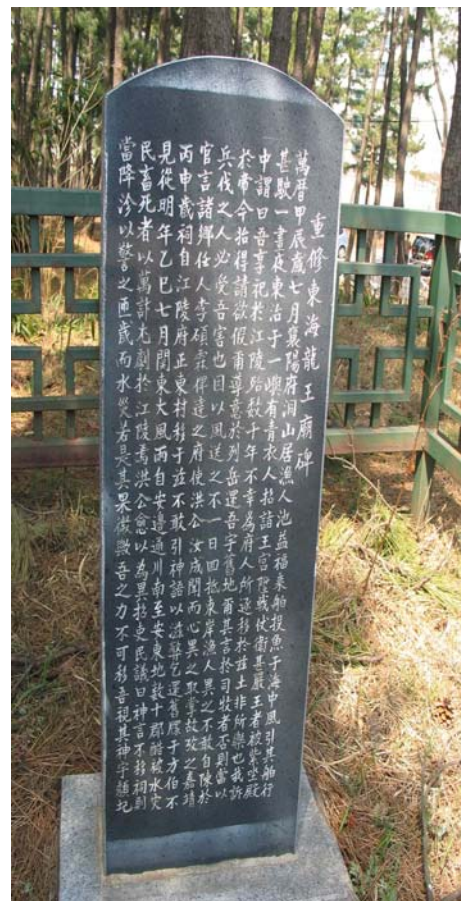 重修東海龍王廟碑
萬曆甲辰歲七月襄陽府洞山居漁人池益福乘船投魚于海中風引其船行
甚駛一晝夜東泊于一嶼有青衣人招詣王宮陛戟仗衛甚嚴王者被紫坐殿
中謂曰吾享祀於江陵殆數千年不幸為府人所逐移於玆土非所樂也我訴
於帝今始得請欲假爾導意於列岳還吾宇舊地爾其言於司牧者否則當以
兵伐之人必受吾害也因以風送之不一日回抵東岸漁人異之不敢自陳於
官言諸鄉任人李碩霖俾達之府使洪公汝成聞而心異之取掌故攷之嘉靖
丙申歲祠自江陵府正東村移于玆不敢引神語以弊乞還舊于方伯不
見從明年乙巳七月関東大風雨自安邊通川南至安東地數十郡酷被水災
民畜死者以萬計尤劇於江陵焉洪公愈以為異移吏民議曰神言不移祠則
當降沴以警之匝歲而水災若是其果徵歟吾之力不可移吾視其神宇隨圮